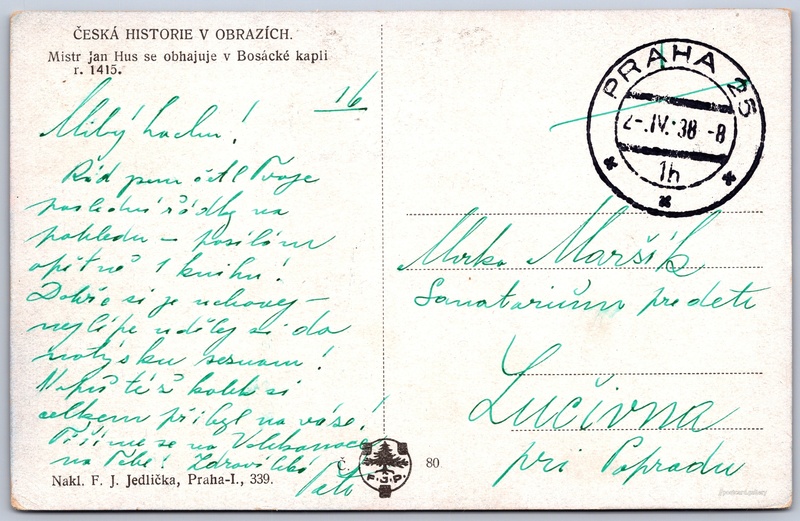 ČESKÁ HISTORIE V OBRAZÍCH.
Mistr Jan Hus se obhajuje v Bosácké kapli
r. 1415.
16
Milý hochu!
Rád jsem četl Tvoje
poslední řádky na
pohledu – posílám
opětně 1 knihu!
Dobře si je uchovej –
nejlépe udělej si do
notýsku seznam!
Napiš též kolik si
celkem přibyl na váze!
Těšíme se na Velikonoce
na Tebe! Zdraví
Táta
Nakl. F. J. Jedlička, Praha-I., 339.
Č. 80
F.J.P.
PRAHA 25
2-.IV.38 -8
1h
Mirko Maršík
Sanatorium pre deti
Lučivna
pri Popradu